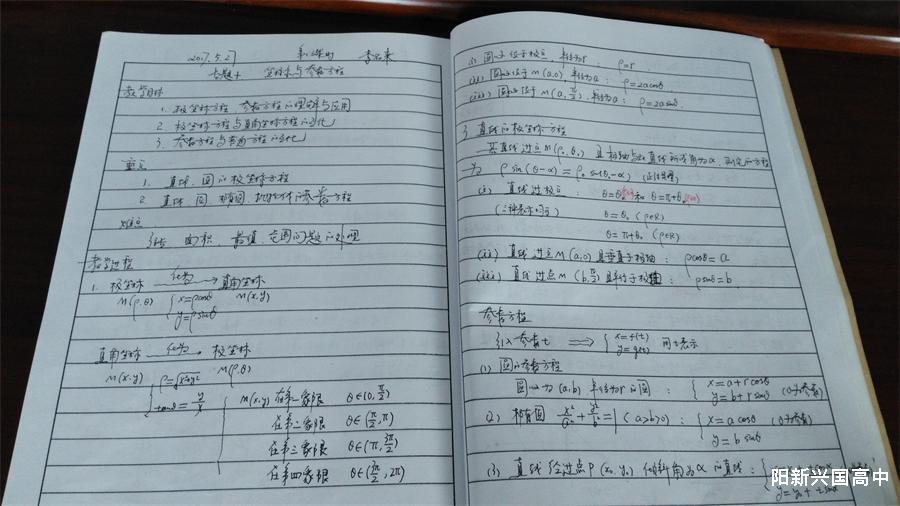 2017.5.27
专题十 坐标系与参数方程
教学目标
1. 极坐标方程、参数方程的理解与应用
2. 极坐标方程与直角坐标方程的互化
3. 参数方程与普通方程的互化
重点
1. 直线、圆的极坐标方程
2. 直线、圆、椭圆、的参数方程
难点
面积、最值、范围问题的处理
教学过程
1. 极坐标 化为 直角坐标
M(ρ,θ) { x=ρcosθ M(x,y)
y=ρsinθ
直角坐标 化为 极坐标
M(x,y) M(ρ,θ)
{ ρ=√x²+y²
tanθ=y/x
M(x,y) 在第一象限 θ∈(0,π/2)
在第二象限 θ∈(π/2,π)
在第三象限 θ∈(π,3π/2)
在第四象限 θ∈(3π/2,2π)
(i) 圆心位于极点,半径为r: ρ=r
(ii) 圆心位于M(a,0),半径为a: ρ=2acosθ
(iii) 圆心位于M(a,π/2),半径为a: ρ=2asinθ
3. 直线的极坐标方程
若直线过点M(ρ₀,θ₀)且极轴与此直线所成角为α,则它的方程
为 ρsin(θ-α)=ρ₀sin(θ₀-α)
(i) 直线过极点: θ=θ₀ 和 θ=π+θ₀
(三种表示形式) θ=θ₀ (ρ∈R)
θ=π+θ₀ (ρ∈R)
(ii) 直线过点M(a,0)且垂直于极轴: ρcosθ=a
(iii) 直线过点M(b,π/2)且平行于极轴: ρsinθ=b
参数方程
引入参数t ⟹ { x=f(t)
y=g(t) 间接表示
(1) 圆的参数方程
圆心为(a,b)半径为r的圆: { x=a+rcosθ
y=b+rsinθ (θ为参数)
(2) 椭圆 x²/a²+y²/b²=1 (a>b>0): { x=acosθ (θ为参数)
y=bsinθ
(3) 直线经过点P(x₀,y₀)倾斜角为α的直线: {
y=y₀+tsinα
阳新兴国高中